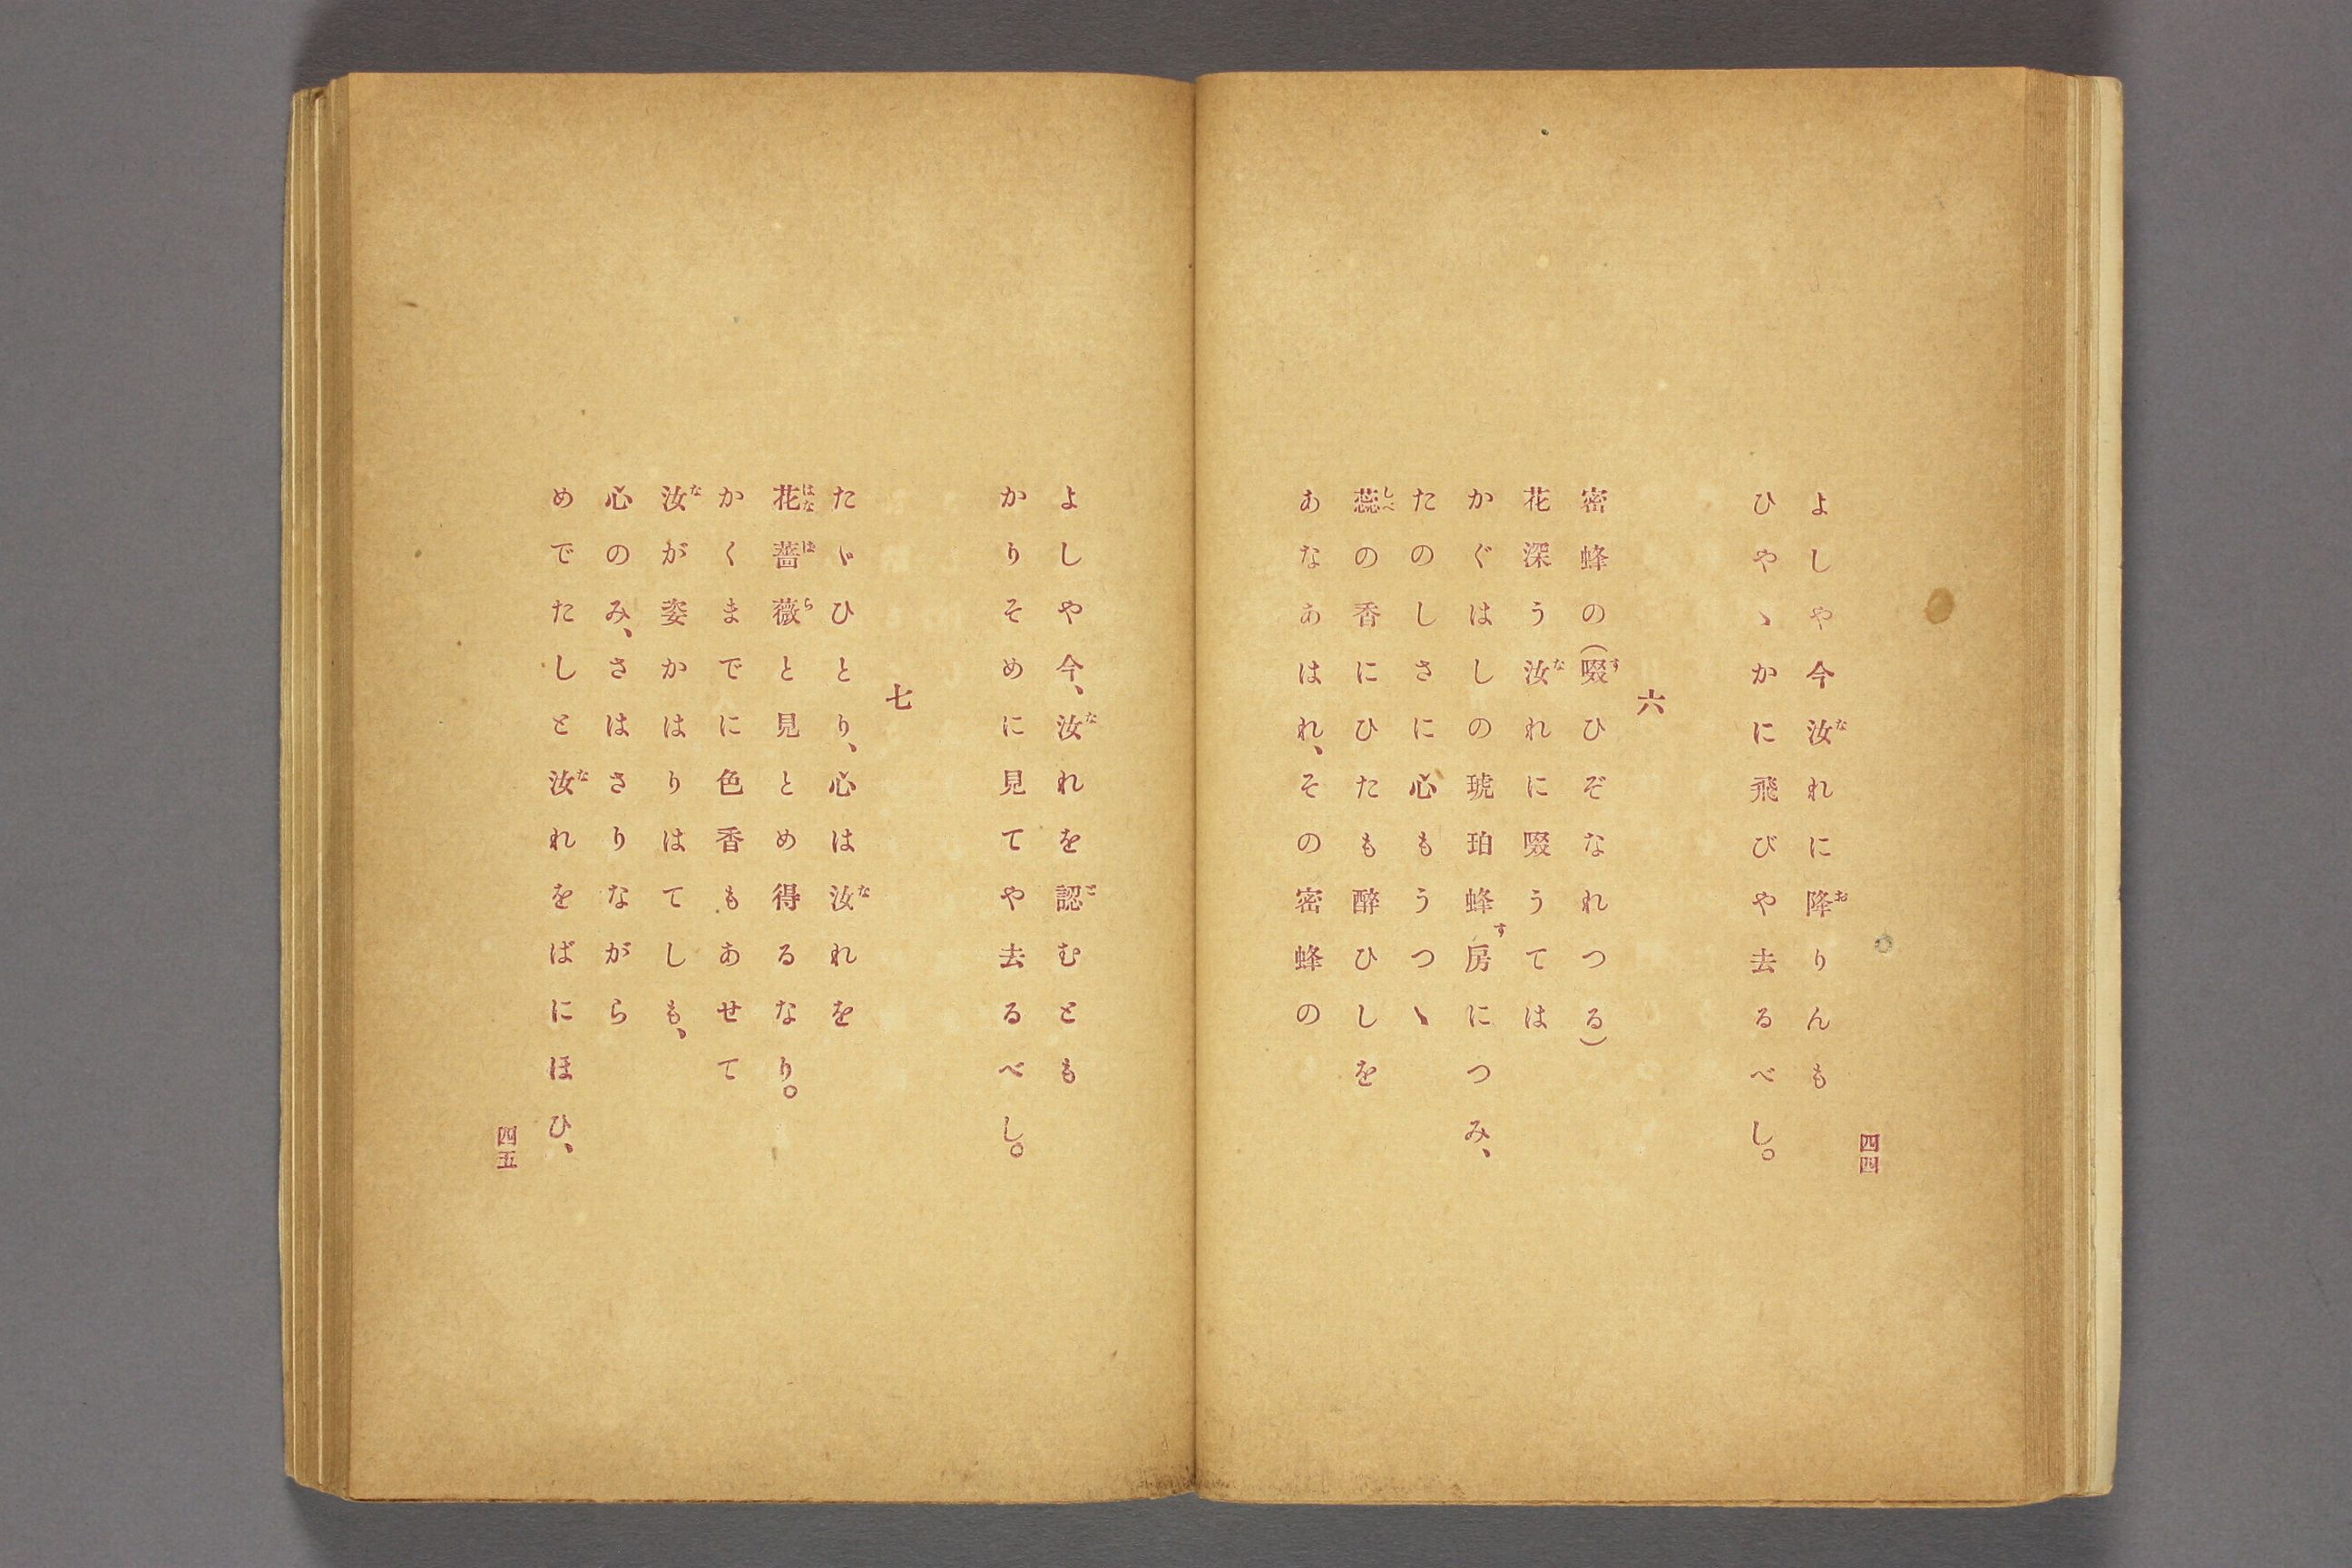 四四
よしや今汝れに降りんも
ひやゝかに飛びや去るべし。
六
密蜂の(啜ひぞなれつる)
花深う汝れに啜うては
かぐはしの琥珀蜂房につみ、
たのしさに心もうつゝ
蕊の香にひたも醉ひしを
あなあはれ、その密蜂の
よしや今、汝れを認むとも
かりそめに見てや去るべし。
七
たゞひとり、心は汝れを
花薔薇と見とめ得るなり。
かくまでに色香もあせて
汝が姿かはりはてしも、
心のみ、さはさりながら
めでたしと汝れをばにほひ、
四五